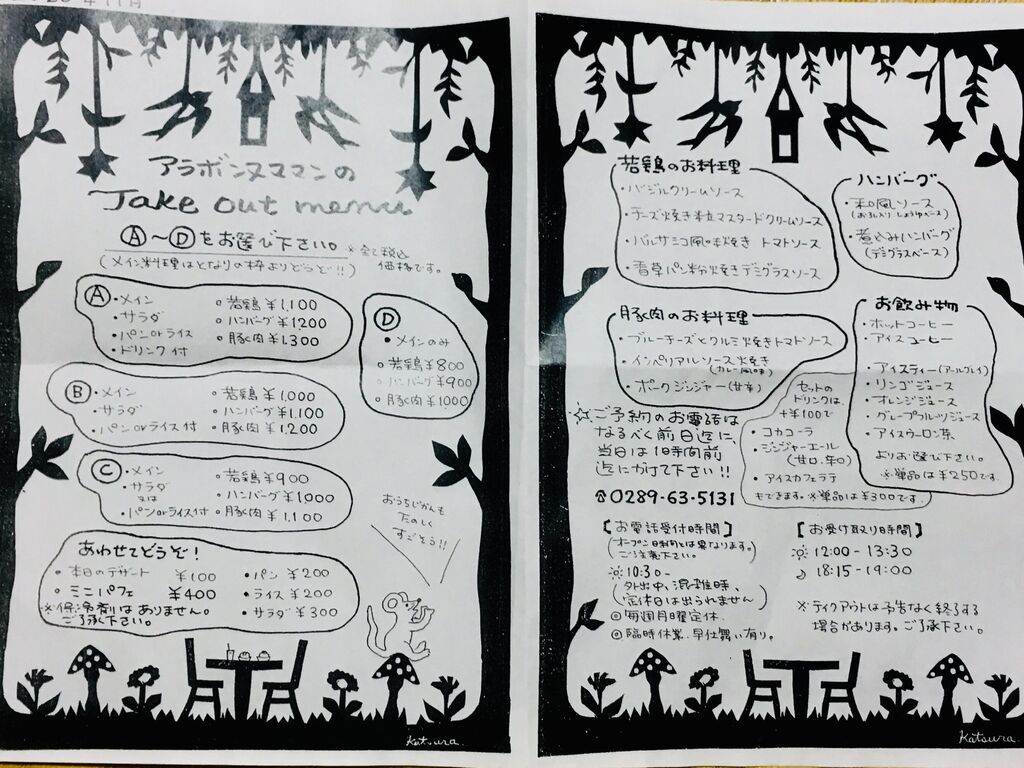 年11月
アラボンヌママンの
Take out menu
Ⓐ〜Ⓓをお選び下さい。
※全て税込価格です。
(メイン料理はとなりの枠よりどうぞ!!)
Ⓐ・メイン
・サラダ
・パンorライス
・ドリンク付
○若鶏¥1,100
○ハンバーグ¥1200
○豚肉¥1,300
Ⓑ・メイン
・サラダ
・パンorライス付
○若鶏¥1,000
○ハンバーグ¥1,100
○豚肉¥1,200
Ⓒ・メイン
・サラダ
又は
・パンorライス付
○若鶏¥900
○ハンバーグ¥1000
○豚肉¥1,100
Ⓓ
・メインのみ
○若鶏¥800
○ハンバーグ¥900
○豚肉¥1000
あわせてどうぞ!
・本日のデザート ¥100
・ミニパフェ ¥400
※保冷剤はありません。
ご了承下さい。
・パン¥200
・ライス¥200
・サラダ¥300
おうちじかんも
たのしく
すごそう!!
Katsura
若鶏のお料理
・バジルクリームソース
・チーズ焼き粒マスタードクリームソース
・バルサミコ風味焼き トマトソース
・香草パン粉焼きデミグラスソース
ハンバーグ
・和風ソース
(おろし入り・しょうゆベース)
・煮込みハンバーグ
(デミグラスベース)
豚肉のお料理
・ブルーチーズとクルミ焼きトマトソース
・インペリアルソース焼き
(カレー風味)
・ポークジンジャー(甘辛)
お飲み物
・ホットコーヒー
・アイスコーヒー
・アイスティー(アールグレイ)
・リンゴジュース
・オレンジジュース
・グレープフルーツジュース
・アイスウーロン茶
よりお選び下さい。
※単品は¥250です。
セットの
ドリンクは
+¥100で
・コカコーラ
・ジンジャーエール
(甘口、辛口)
・アイスカフェラテ
もできます。※単品は¥300です。
☆ご予約のお電話は
なるべく前日迄に、
当日は1時間前
迄にかけて下さい!!
☎0289-63-5131
【お電話受付時間】
(オープン日時とは異なります。
ご注意下さい。)
10:30-
(外出中、混雑時、
定休日は出られません)
◎毎週月曜定休.
◎臨時休業.早仕舞い有り。
【お受け取り時間】
12:00-13:30
18:15-19:00
※テイクアウトは予告なく終了する
場合があります。ご了承下さい。
Katsura